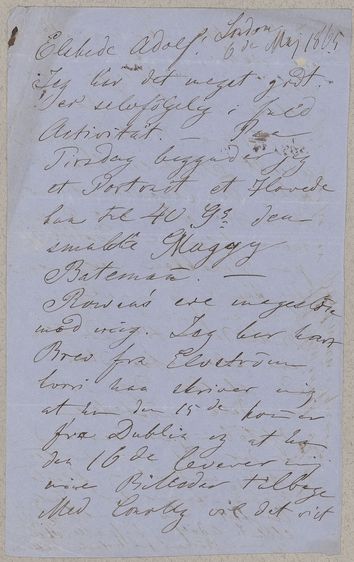 Elskede Adolf. London
6 de Maj 1865
Jeg har det meget godt.
er selvfølgelig i fuld
Activitat. — Paa
Tirsdag begynder jeg
et Portrait et Hovede
kun til 40 Gs den
smukke Maggy
Bateman. —
ere meget
mod mig. Jeg har havt
Brev fra Elvström
hvori han skriver mig
at han den 15 de kommer
fra Dublin og at han
den 16 de leverer mig
mine Billeder tilbage
Med vil det vist